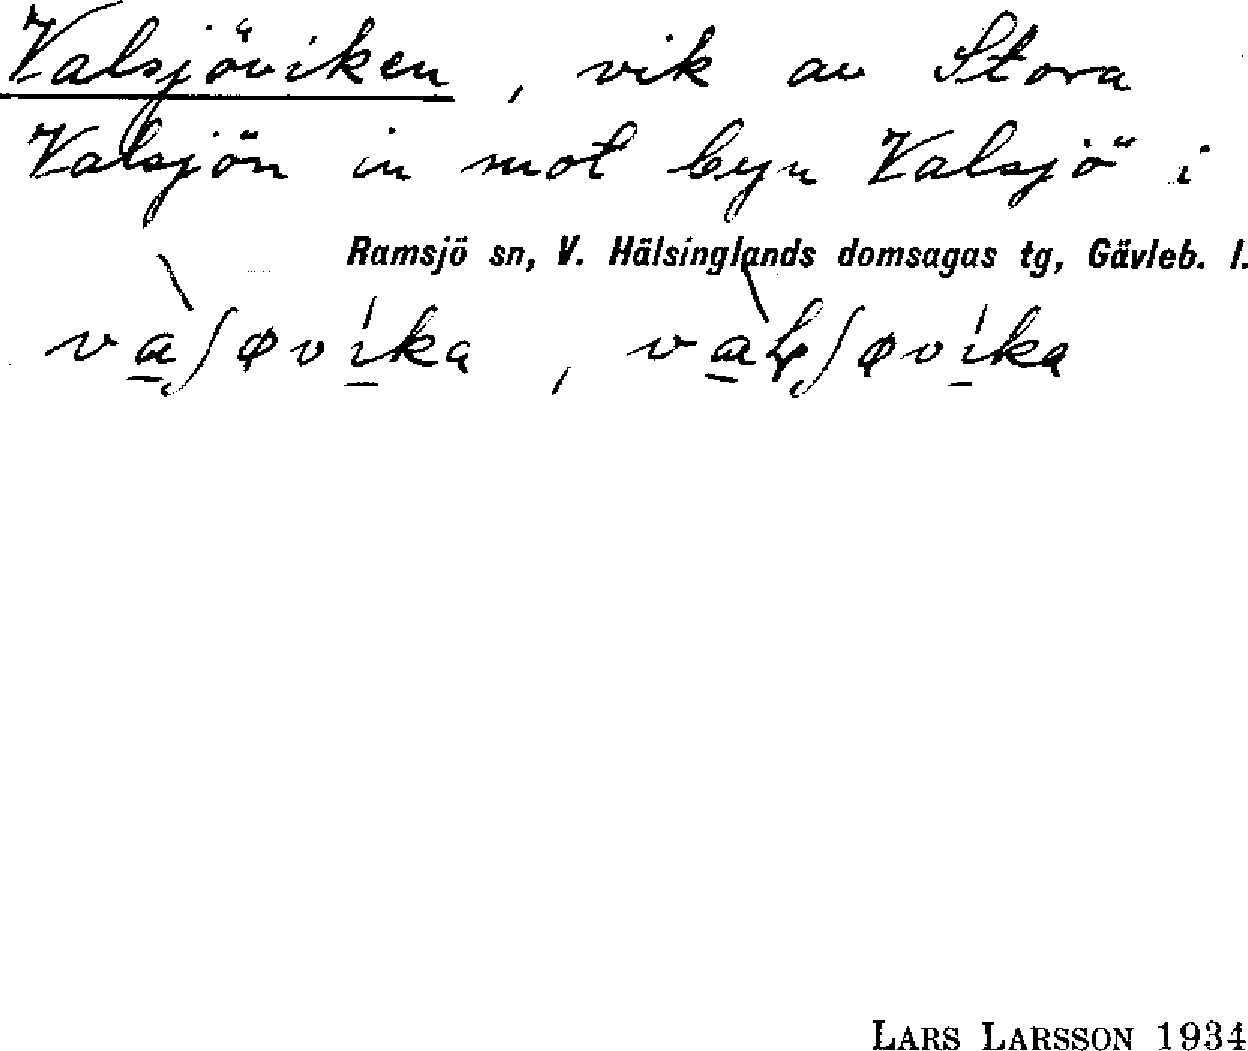 Valsjöviken, vik av Stora
Valsjön in mot byn Valsjö i
Ramsjö sn, V. Hälsinglands domsagas tg, Gävleb. l.
LARS LARSSON 1934